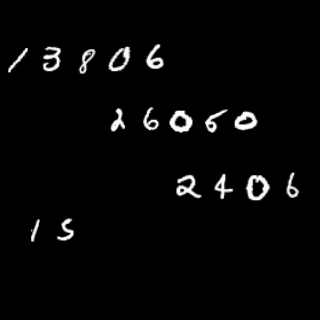 13806
26050
2406
15